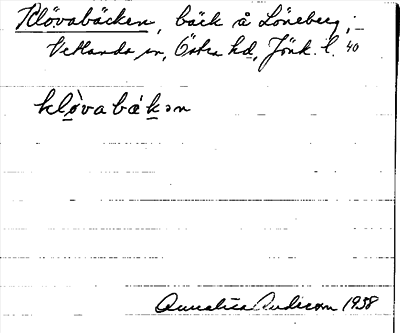 Klövabäcken, bäck å Löneberg,
Vetlanda sn, Östra hd, Jönk. l. 40
klòvabákən
Annalisa Andersson 1938